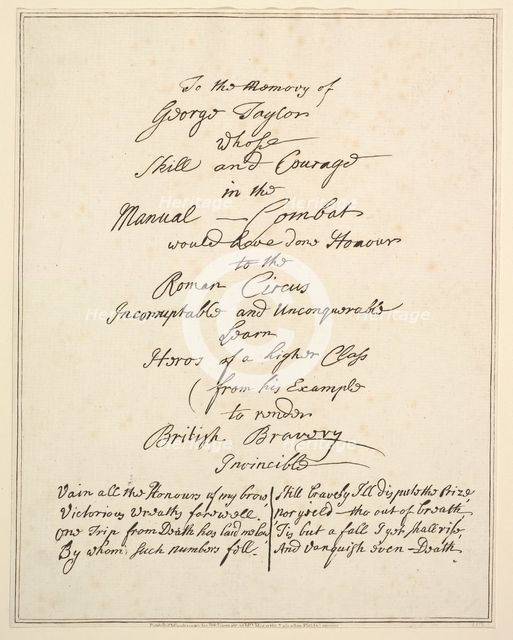 To the Memory of
George Taylor
whose
Skill and Courage
in the
Manual — Combat
would have done Honour
to the
Roman Circus
Incorruptable and Unconquerable
Learn
Heros of a higher Class
(from his Example
to render
British Bravery
Invincible
Vain all the Honours of my brow
Victorious Wreaths farewell.
One Trip from Death has laid me low
By whom such numbers fell.
Still bravely I'll dispute the Prize
nor yield — tho out of breath
Tis but a fall I yet shall rise
And Vanquish even — Death
Heritage
Heritage
Heritage
Heritage
Heritage
Heritage
C